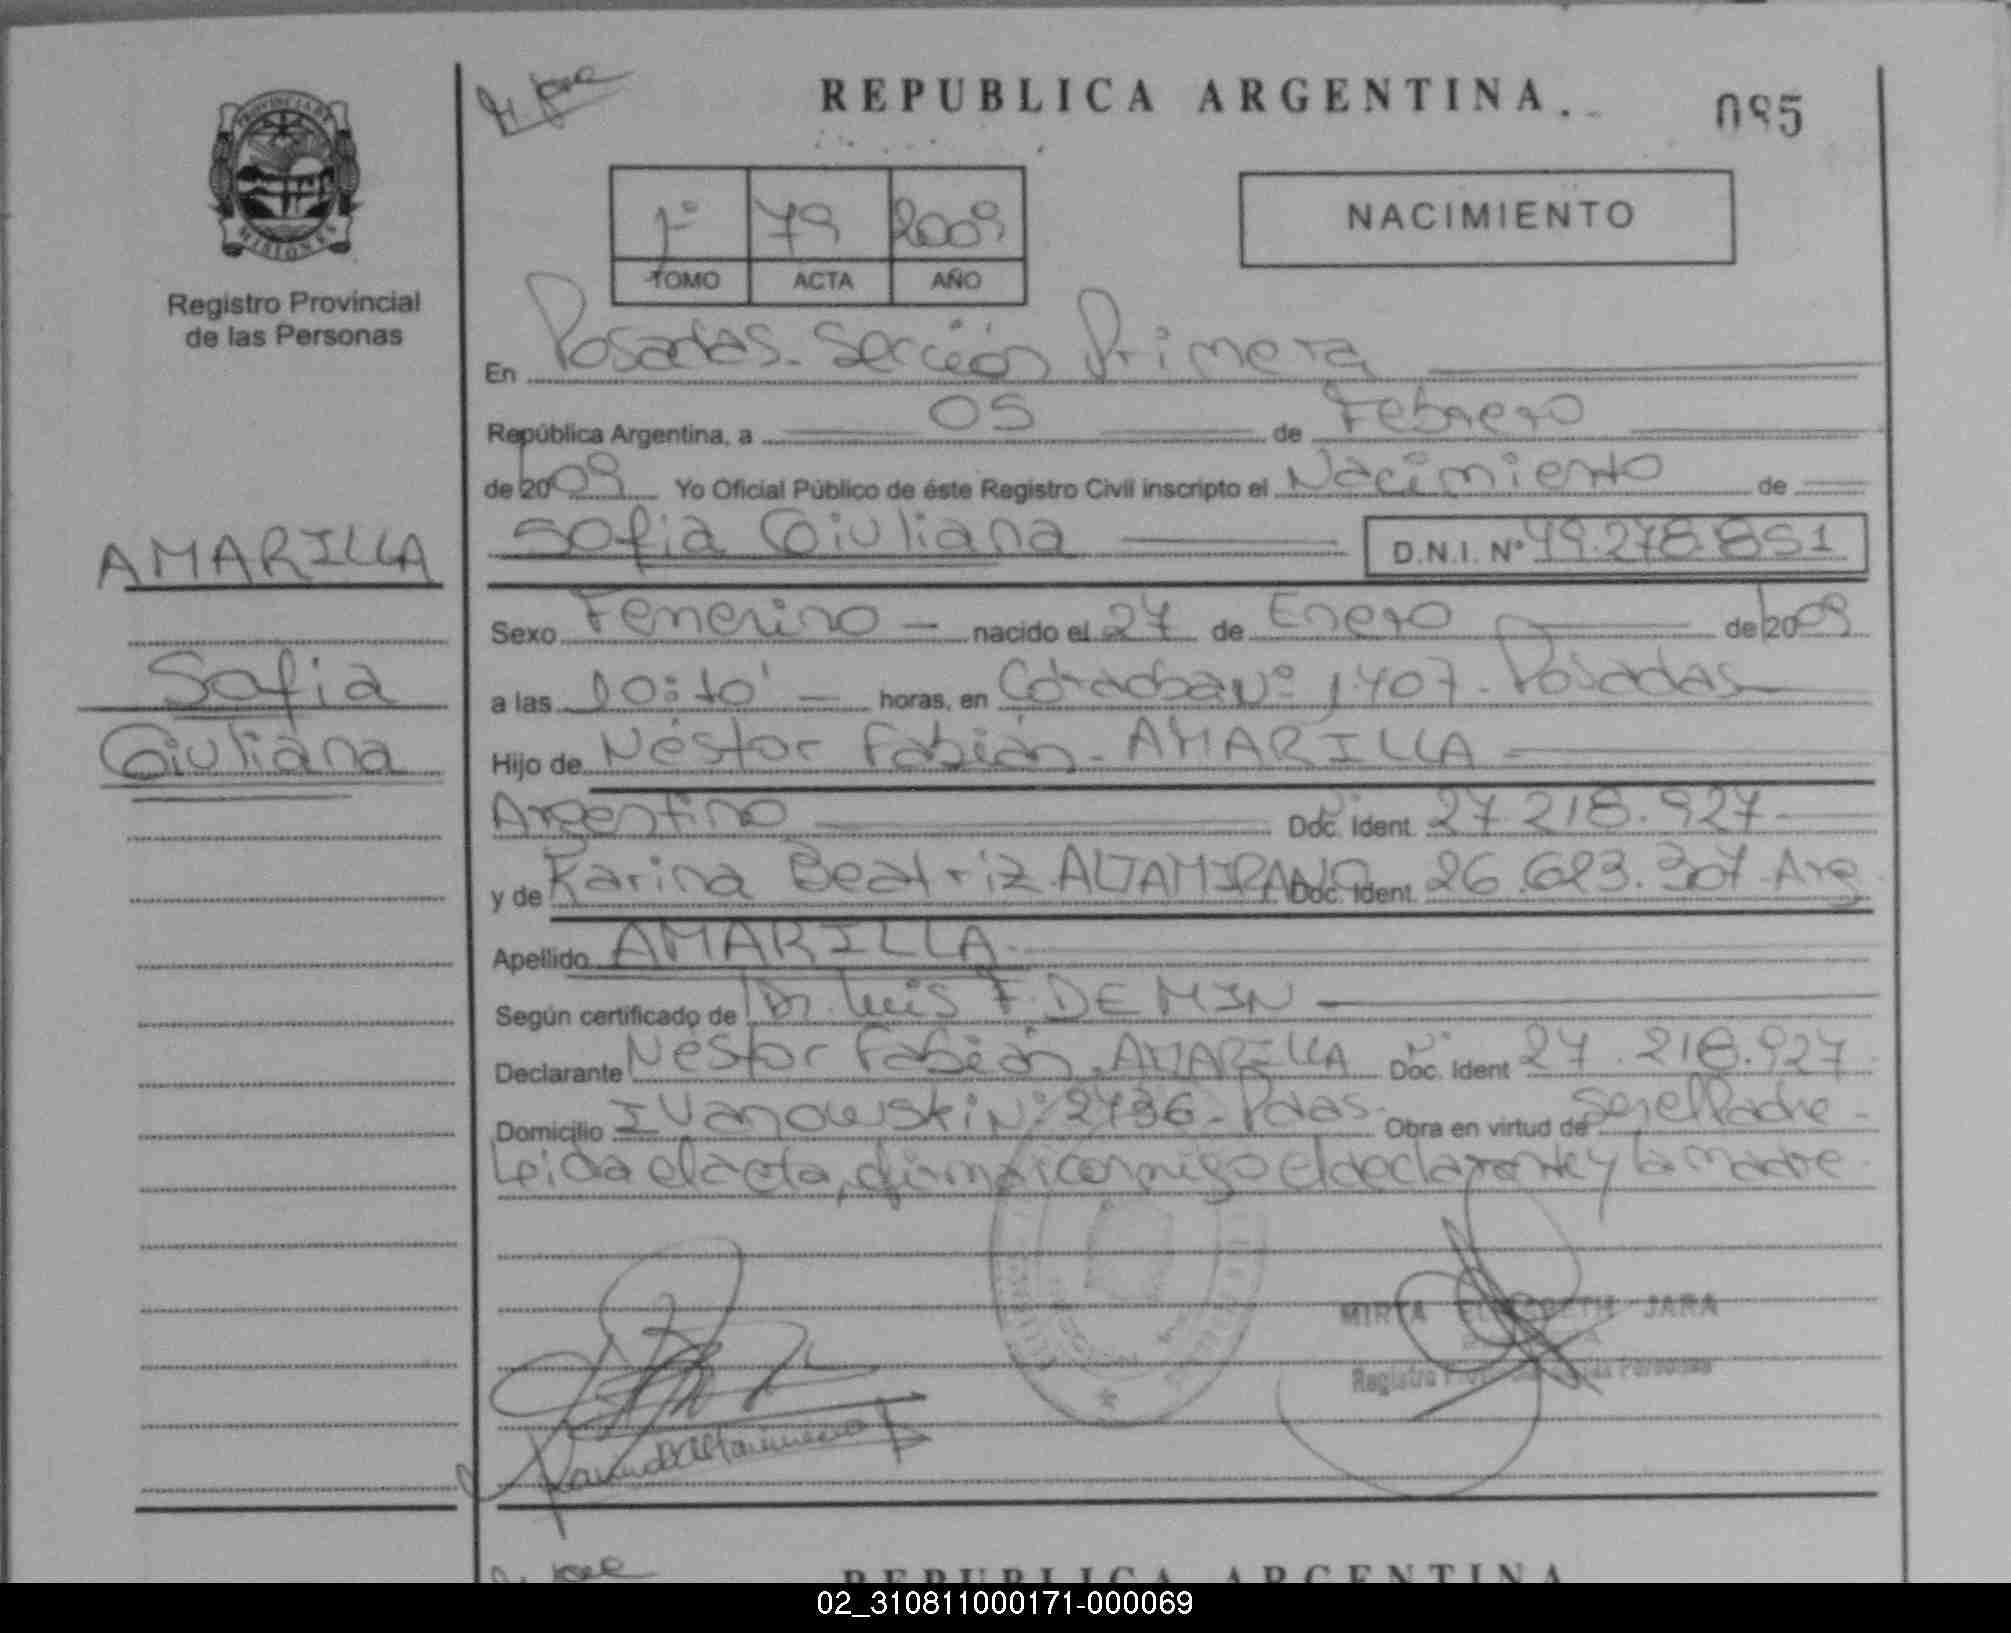 REPUBLICA ARGENTINA
085
PROVINCIA DE
MISIONES
Registro Provincial
de las Personas
1º 79 2009
TOMO ACTA AÑO
NACIMIENTO
En Posadas- Sección Primera
República Argentina, a 05 de Febrero
de 2009 Yo Oficial Público de éste Registro Civil inscripto el Nacimiento de
Sofia Giuliana D.N.I. Nº 49.278.851
AMARILLA
Sofia
Giuliana
Sexo Femenino - nacido el 27 de Enero de 2009
a las 10:10' - horas, en Córdoba Nº 1407- Posadas
Hijo de Néstor Fabián- AMARILLA
Argentino Doc. Ident. 27.218.927-
y de Karina Beatriz ALTAMIRANO Doc. Ident. 26.623.307- Arg
Apellido AMARILLA-
Según certificado de Dr. Luis F. DEMIN
Declarante Néstor Fabián AMARILLA Doc. Ident 27.218.927-
Domicilio Ivanowski Nº 2736- Pdas- Obra en virtud de Ser el Padre -
Leida el acta, firman conmigo el declarante y la madre-
MIRTA ELIZABETH JARA
Registro Provincial de las Personas
REPUBLICA ARGENTINA
02_310811000171-000069